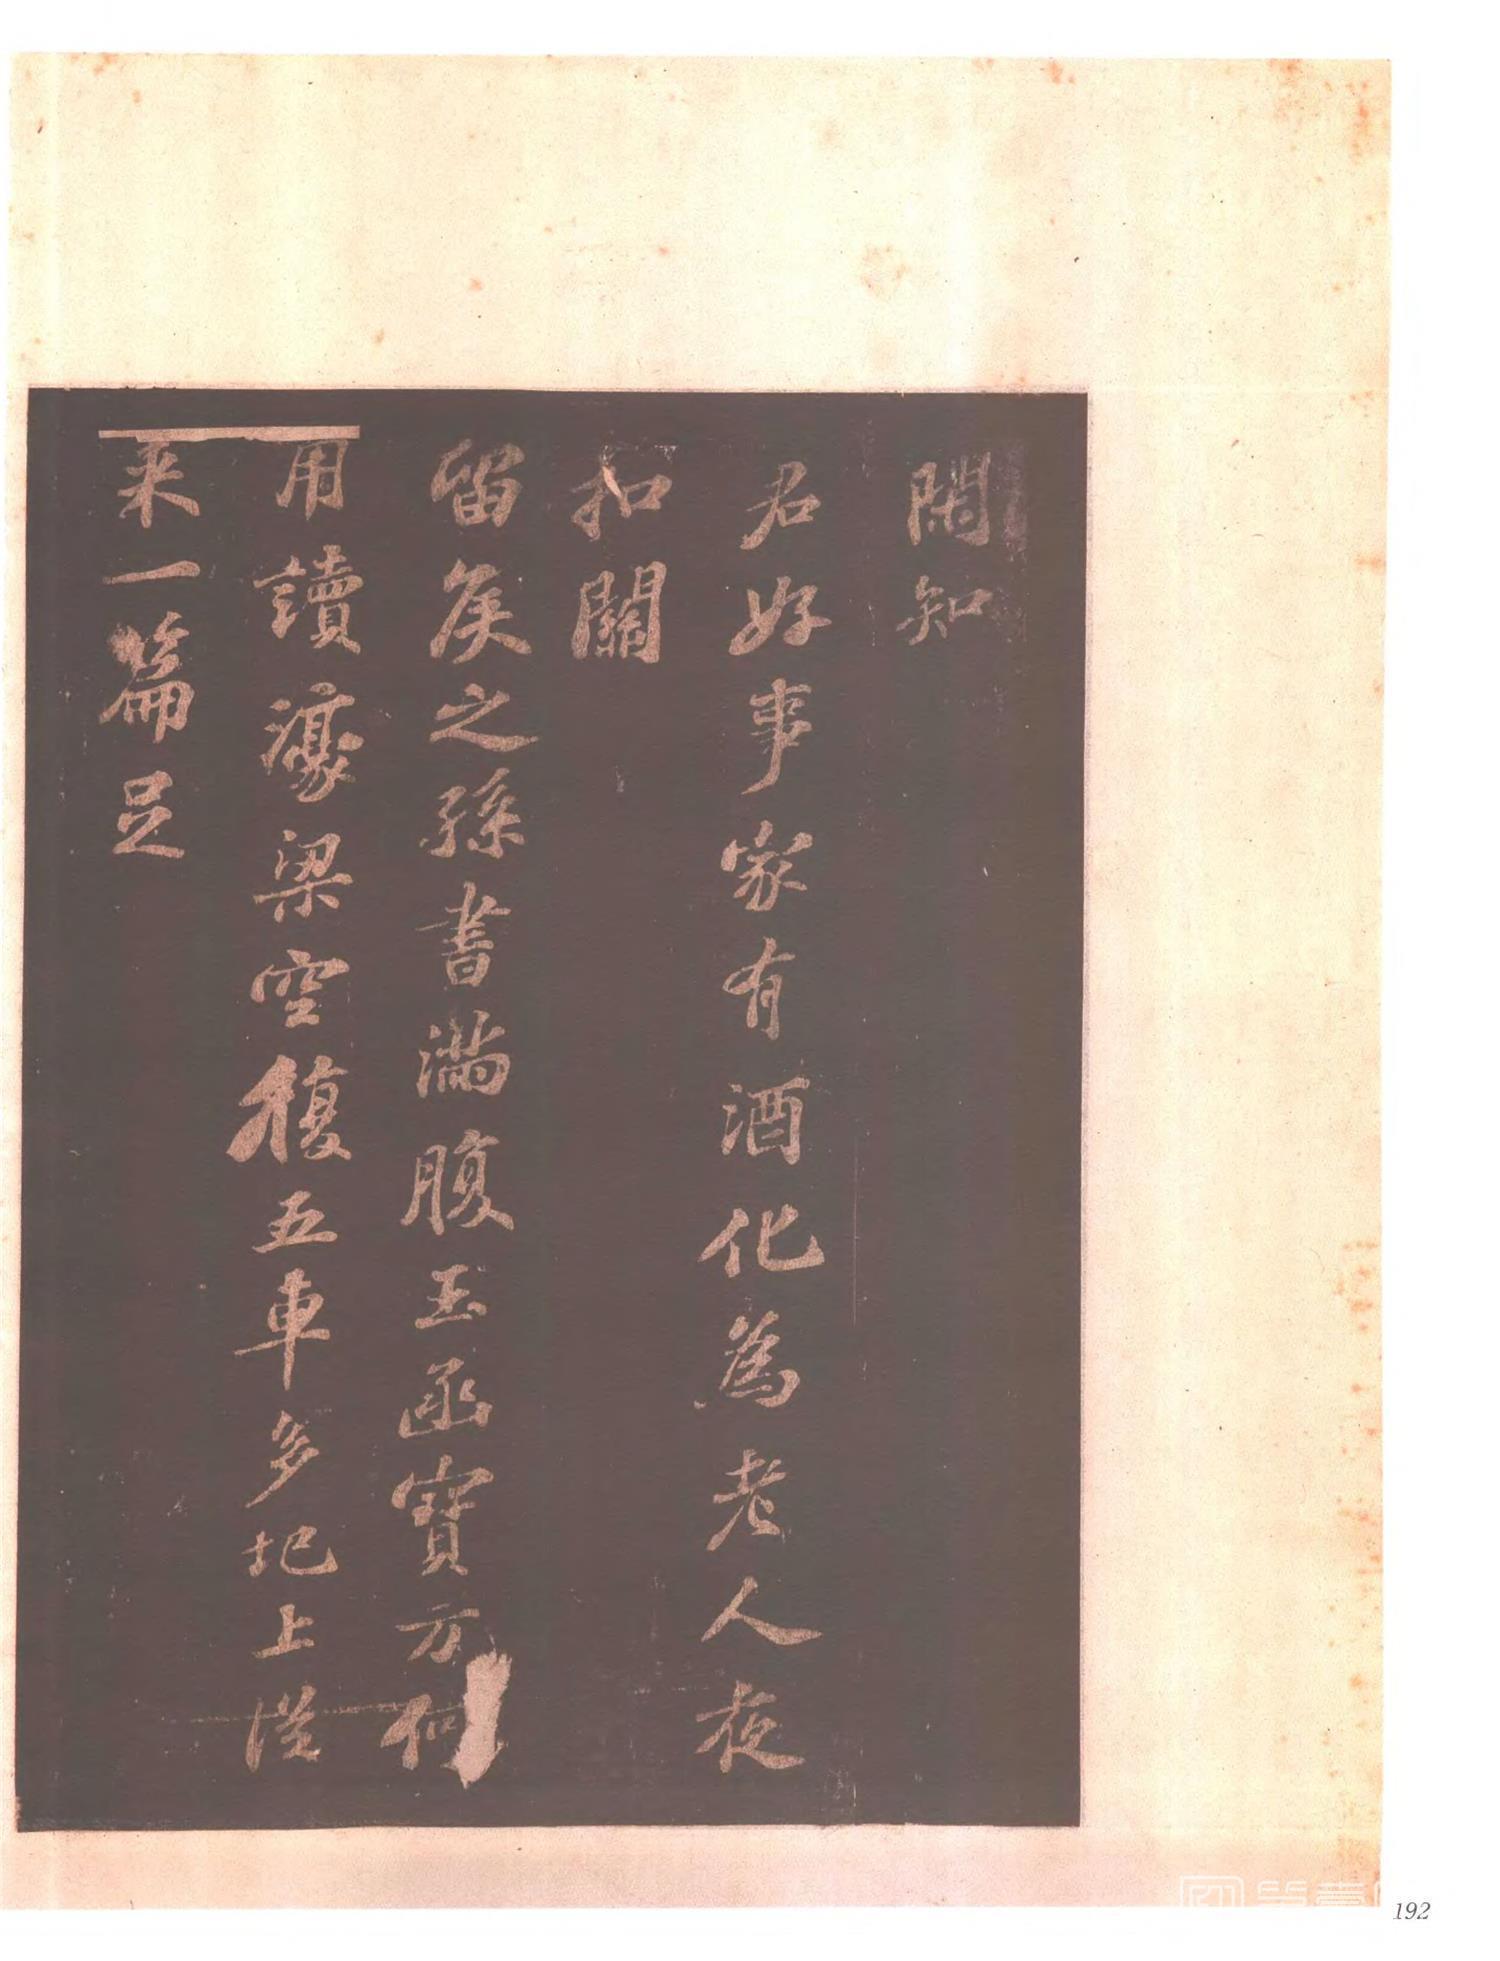 閑知
君好事家有酒化為老人夜
扣關
留侯之孫書滿腹玉函寶方何
用讀濠梁空復五車多圯上從
来一篇足
192